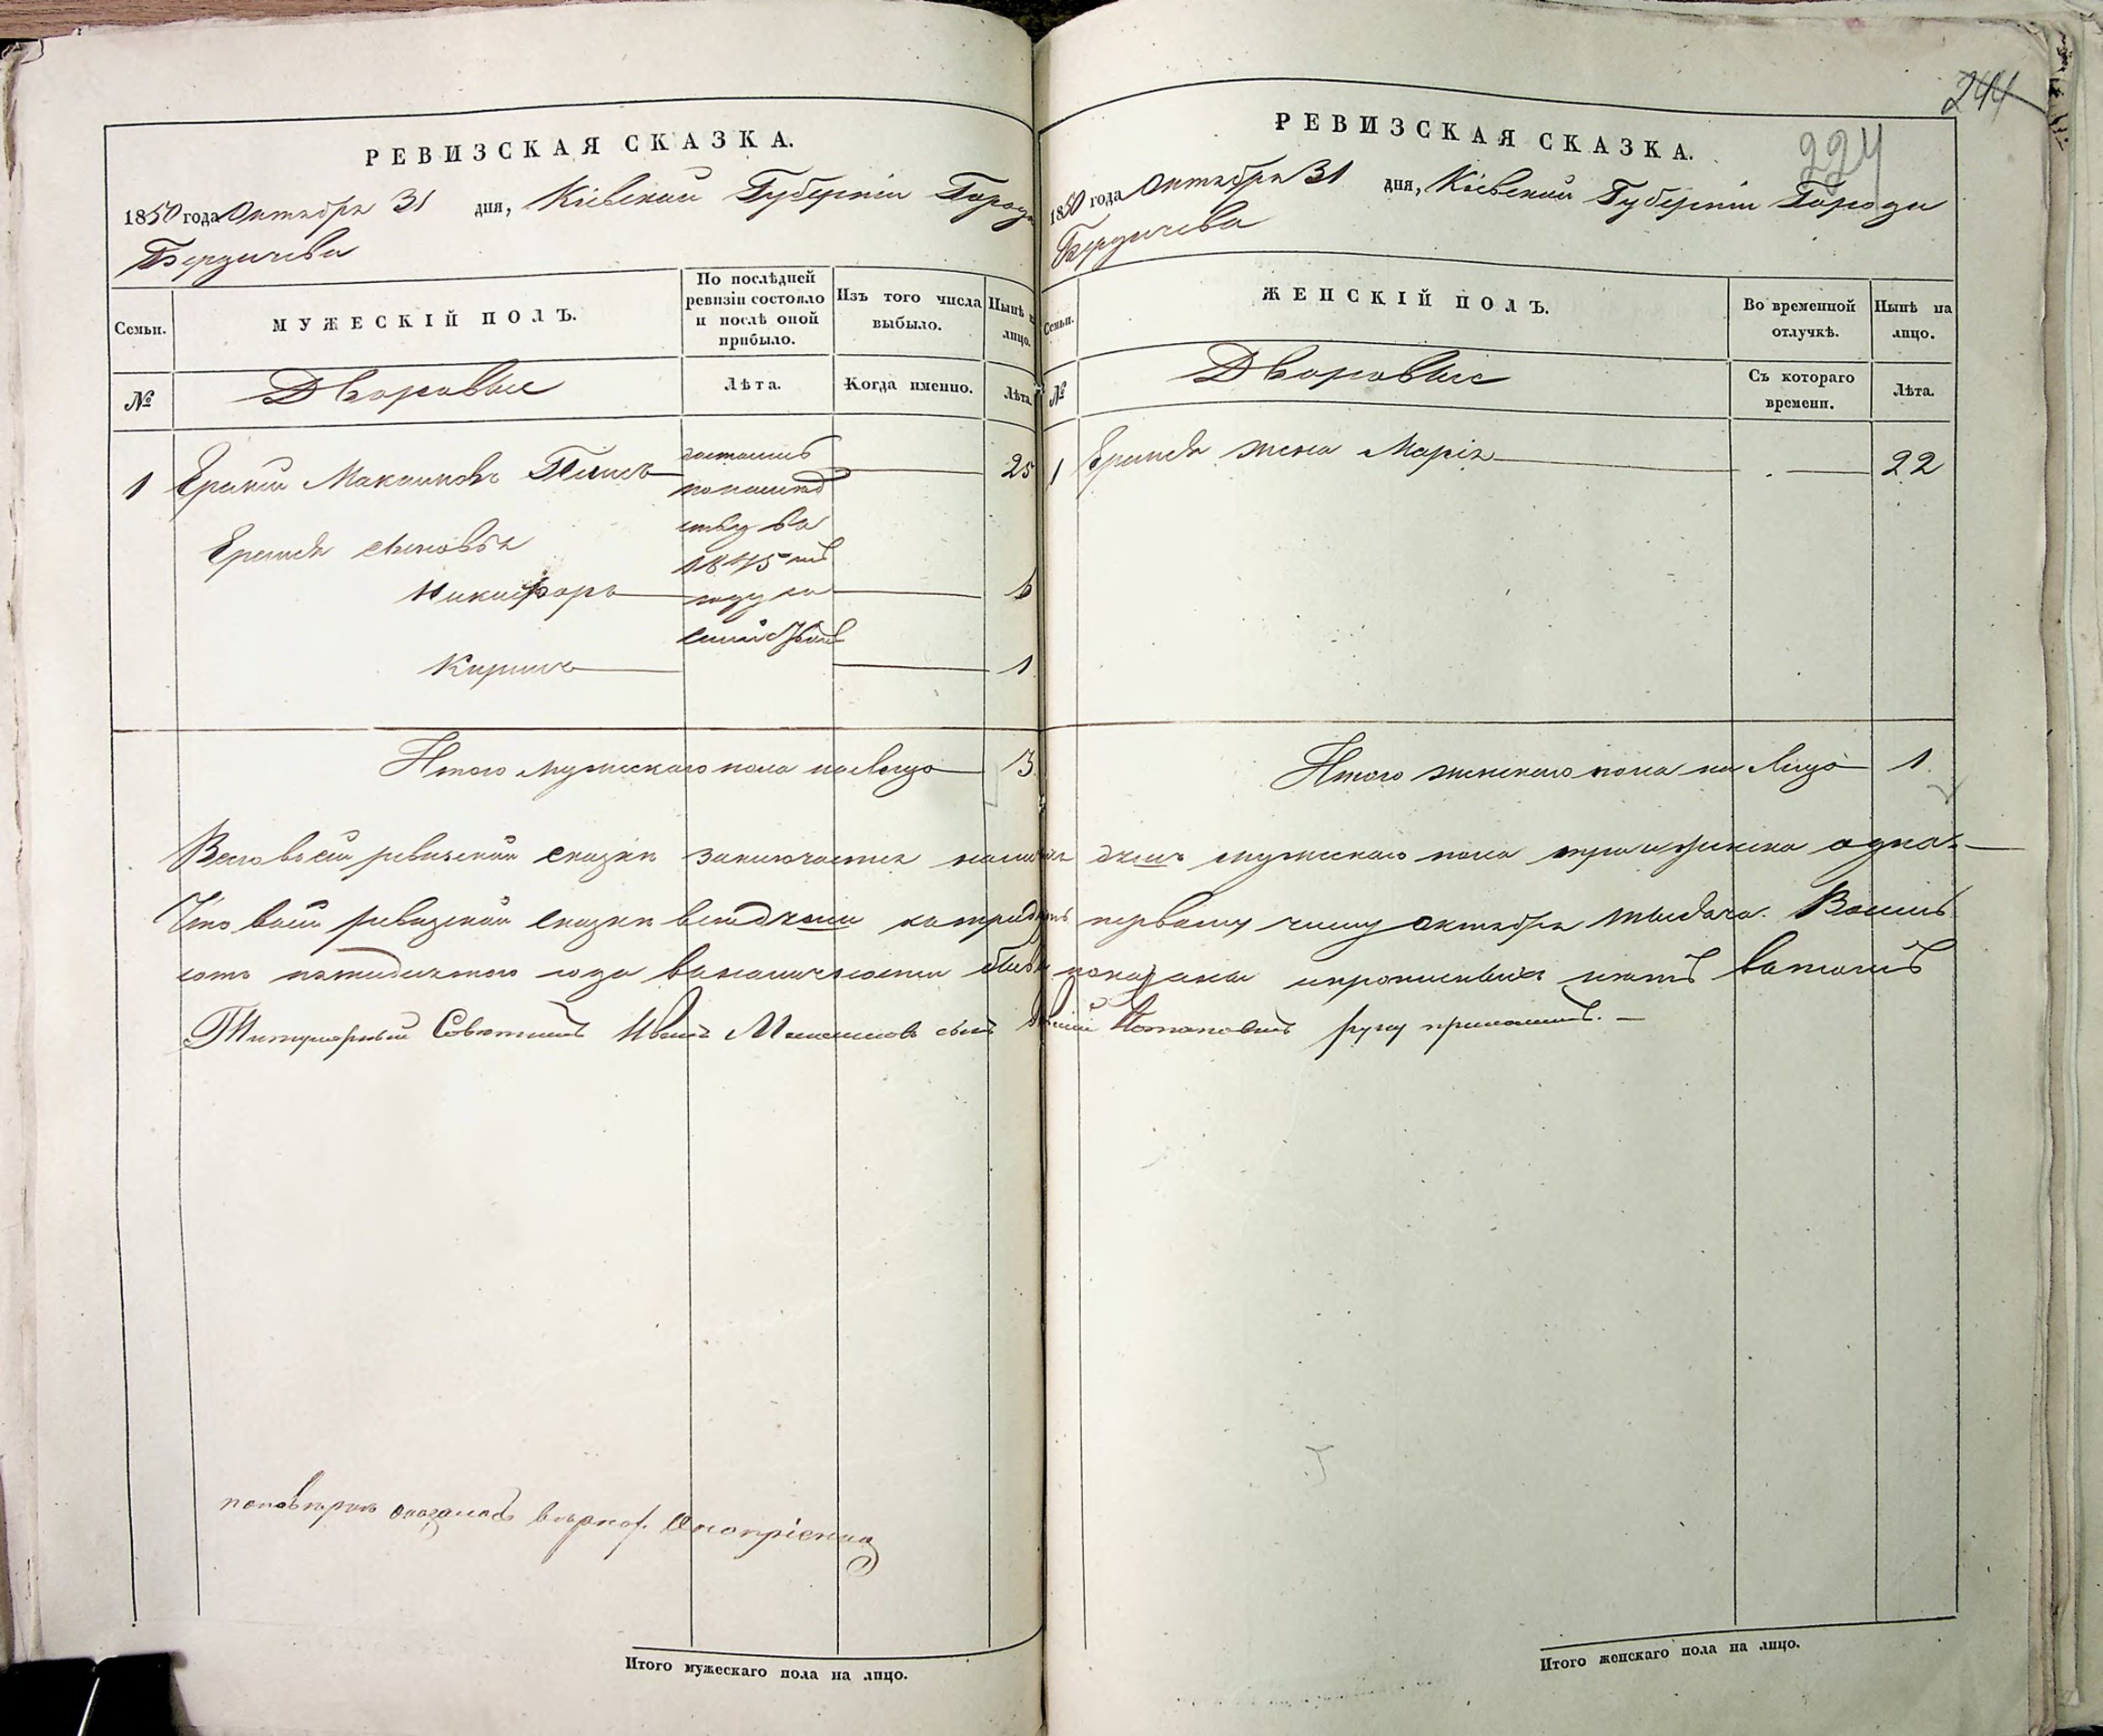 РЕВИЗСКАЯ СКАЗКА.
1850 года Октября 31 дня, Кіевской Губерніи Города
Бердичева
Семьи. МУЖЕСКІЙ ПОЛЪ. По послѣдней ревизіи состояло и послѣ оной прибыло. Изъ того числа выбыло. Нынѣ на лицо.
№ Дворовые Лѣта. Когда именно. Лѣта.
1 Еремій Максимовъ 25
достались
по наслѣд
ству въ
Еремѣя сыновья
1845 мъ
Никифоръ году 6
Кирилъ 1
Итого мужескаго пола на лицо 3
244
224
РЕВИЗСКАЯ СКАЗКА.
1850 года Октября 31 дня, Кіевской Губерніи Города
Бердичева
Семьи. ЖЕНСКІЙ ПОЛЪ. Во временной отлучкѣ. Нынѣ на лицо.
№ Дворовые Съ котораго времени. Лѣта.
1 Еремѣя жена Марія 22
Итого женскаго пола на лицо 1
Всего въ сей ревизской сказкѣ заключается наличныхъ душъ мужескаго пола три и женска одна.
Что въ сей ревизской сказкѣ всѣ души къ первому числу Октября тысяча Восемь
сотъ пятидесятого года въ наличности показаны и прописныхъ нѣтъ въ томъ
Титулярный Совѣтникъ Иванъ Максимовъ сынъ руку приложилъ.
по повѣркѣ оказалось вѣрно.
Итого мужескаго пола на лицо.
Итого женскаго пола на лицо.